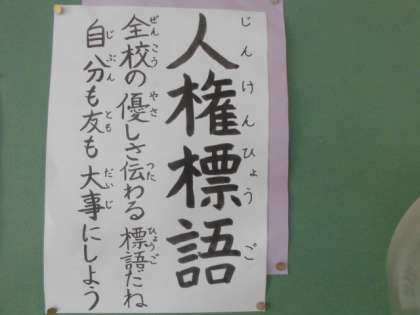 人権標語
じんけんひょうご
全校の優しさ伝わる標語だね
ぜんこう やさ つた ひょうご
自分も友も大事にしよう
じぶん とも だいじ